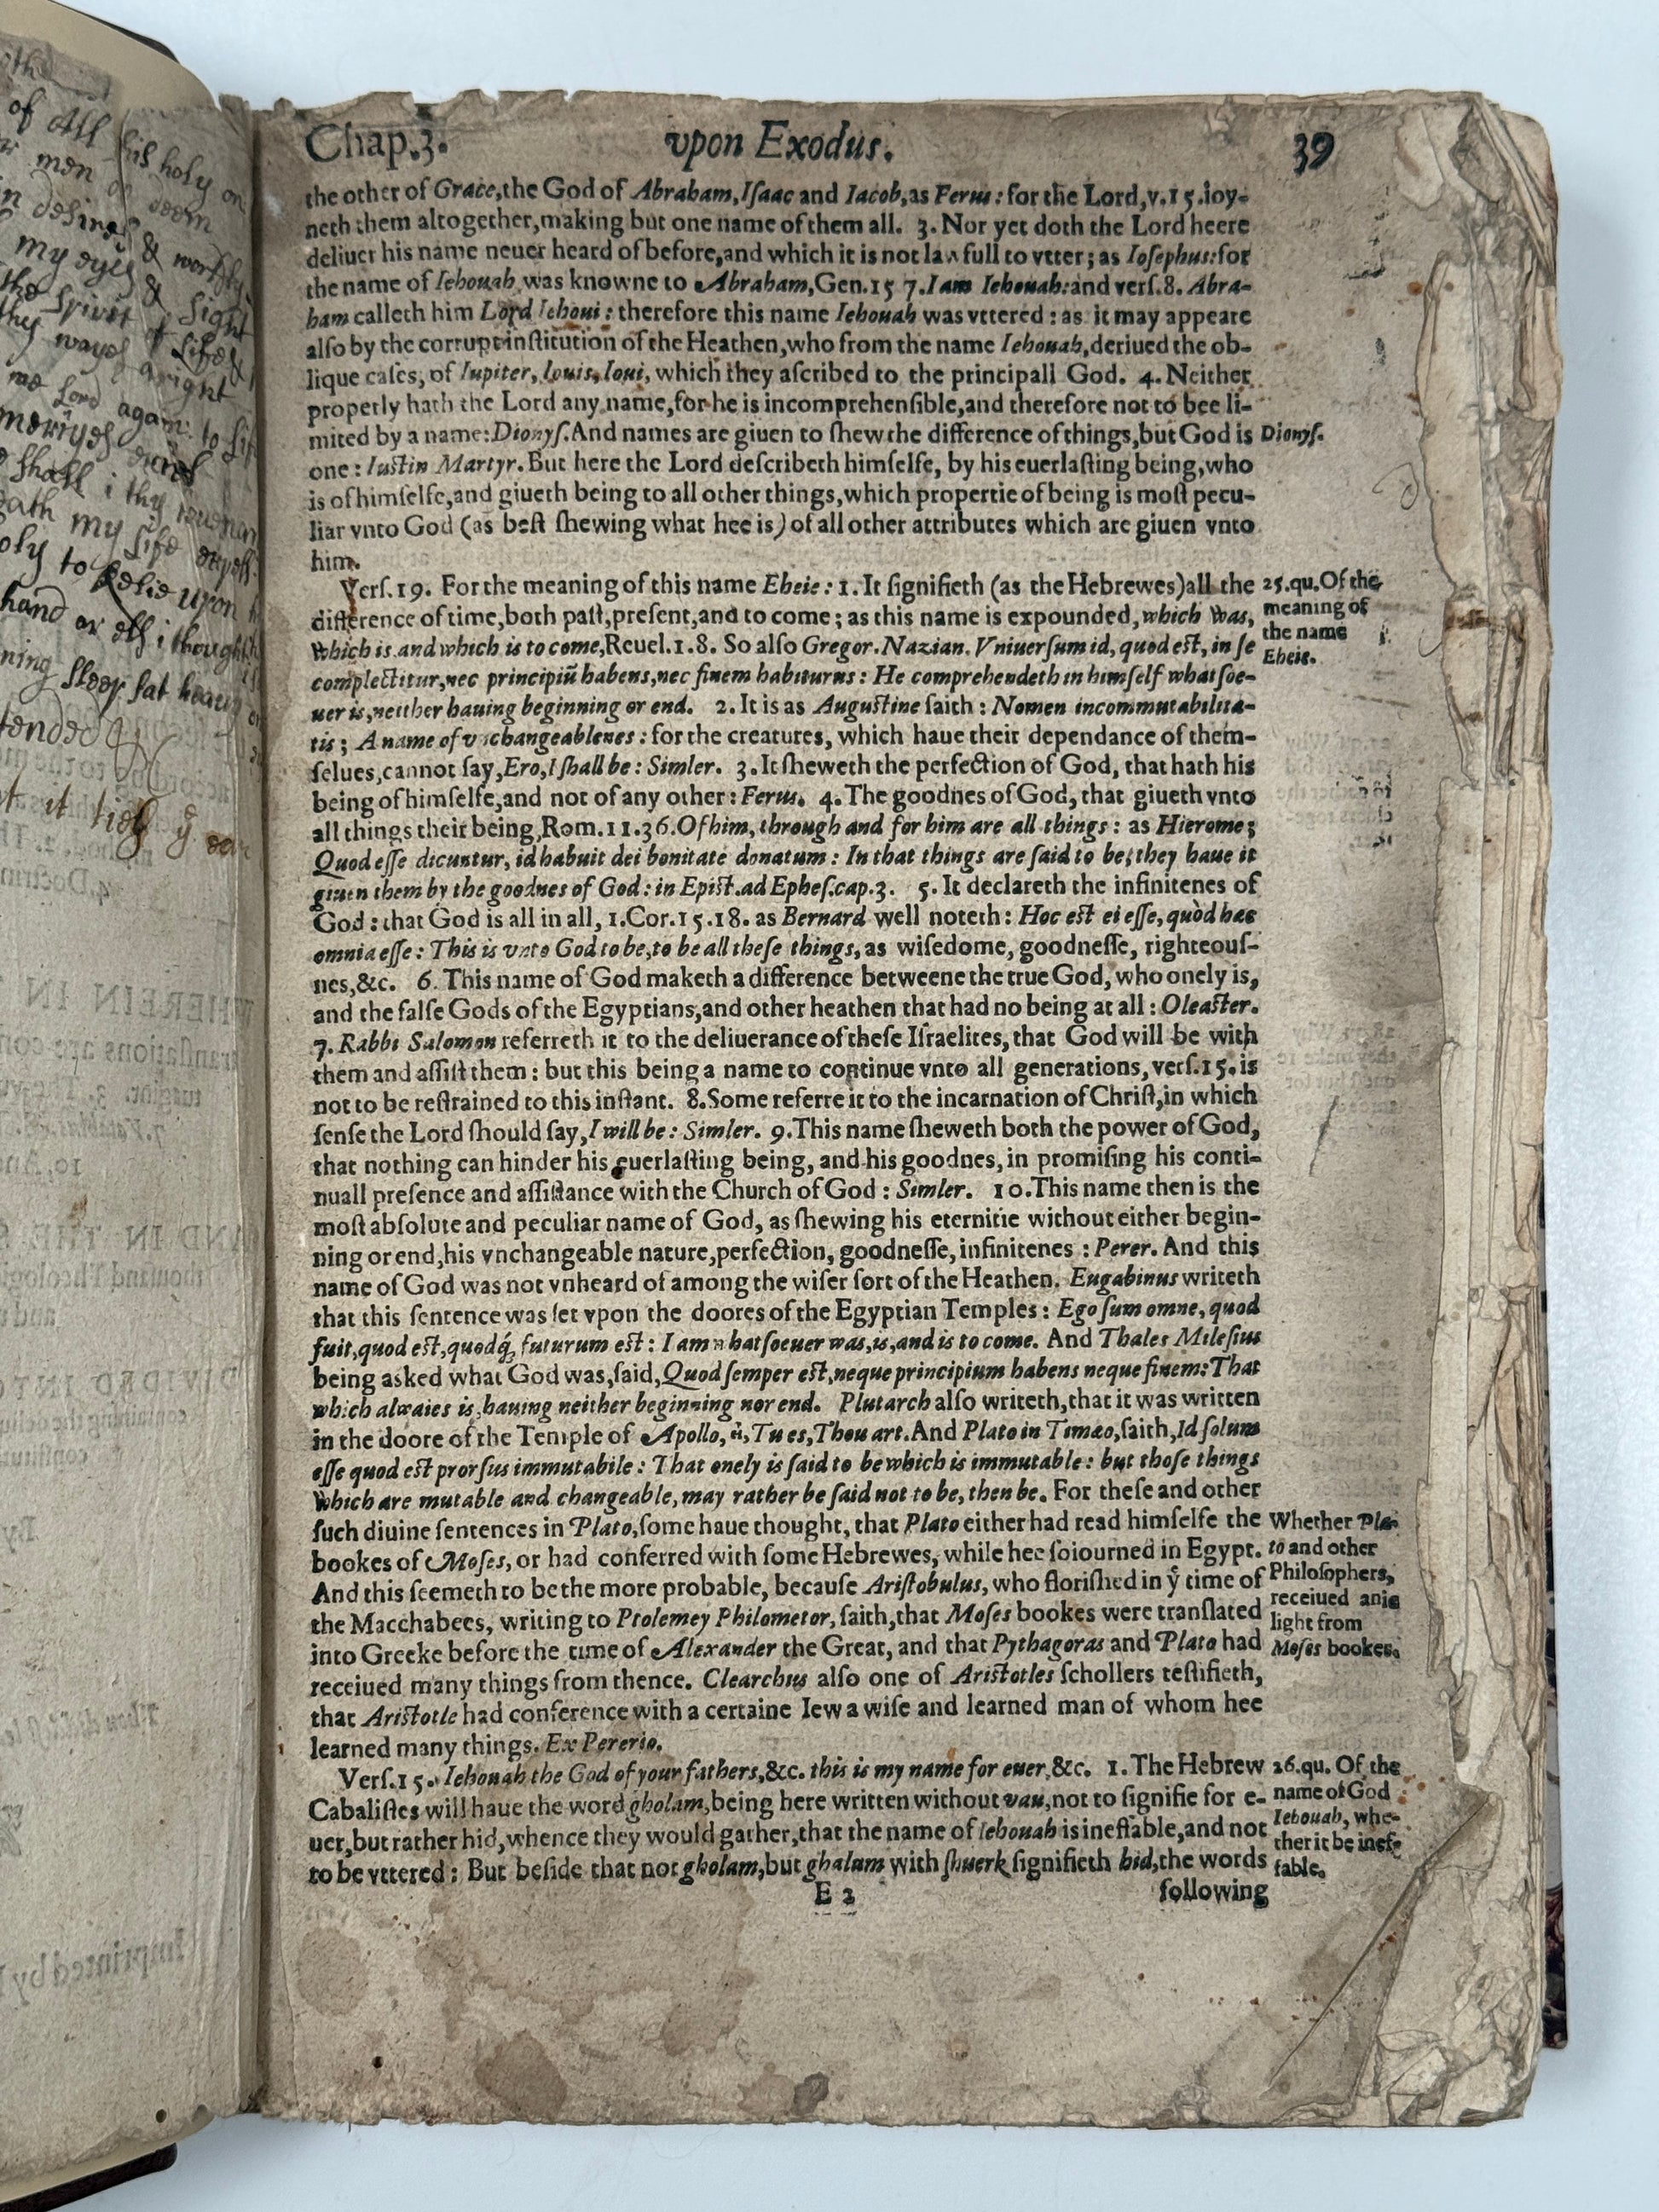 Chap.3. vpon Exodus. 39
the other of Grace,the God of Abraham,Iſaac and Iacob,as Ferus: for the Lord,v.15.ioy-
neth them altogether,making but one name of them all. 3. Nor yet doth the Lord heere
deliuer his name neuer heard of before,and which it is not lawfull to vtter; as Ioſephus:for
the name of Iehouah was knowne to Abraham,Gen.15 7.I am Iehouah:and verſ.8. Abra-
ham calleth him Lord Iehoui: therefore this name Iehouah was vttered: as it may appeare
alſo by the corrupt inſtitution of the Heathen,who from the name Iehouah,deriued the ob-
lique caſes, of Iupiter, Iouis, Ioui, which they aſcribed to the principall God. 4. Neither
properly hath the Lord any name,for he is incomprehenſible,and therefore not to bee li-
mited by a name:Dionyſ.And names are giuen to ſhew the difference of things,but God is
Dionyſ.
one: Iuſtin Martyr.But here the Lord deſcribeth himſelfe, by his euerlaſting being,who
is of himſelfe,and giueth being to all other things,which propertie of being is moſt pecu-
liar vnto God (as beſt ſhewing what hee is) of all other attributes which are giuen vnto
him.
Verſ.19. For the meaning of this name Eheie: 1. It ſignifieth (as the Hebrewes)all the
difference of time,both paſt,preſent,and to come; as this name is expounded, which was,
which is and which is to come,Reuel.1.8. So alſo Gregor. Nazian. Vniuerſum id, quod eſt, in ſe
complectitur,nec principiũ habens,nec finem habiturus: He comprehendeth in himſelf whatſoe-
uer is,neither hauing beginning or end. 2. It is as Auguſtine ſaith: Nomen incommutabilita-
tis; A name of vnchangeablenes: for the creatures, which haue their dependance of them-
ſelues,cannot ſay,Ero,I ſhall be: Simler. 3. It ſheweth the perfection of God, that hath his
being of himſelfe,and not of any other: Ferus. 4. The goodnes of God, that giueth vnto
all things their being,Rom.11.36.Of him, through and for him are all things: as Hierome;
Quod eſſe dicuntur, id habuit dei bonitate donatum: In that things are ſaid to be, they haue it
giuen them by the goodnes of God: in Epiſt.ad Epheſ.cap.3. 5. It declareth the infinitenes of
God: that God is all in all, 1.Cor.15.18. as Bernard well noteth: Hoc eſt ei eſſe, quòd hæc
omnia eſſe: This is vnto God to be,to be all theſe things, as wiſedome, goodneſſe, righteouſ-
nes,&c. 6. This name of God maketh a difference betweene the true God, who onely is,
and the falſe Gods of the Egyptians,and other heathen that had no being at all: Oleaſter.
7. Rabbi Salomon referreth it to the deliuerance of theſe Iſraelites, that God will be with
them and aſſiſt them: but this being a name to continue vnto all generations, verſ.15. is
not to be reſtrained to this inſtant. 8.Some referre it to the incarnation of Chriſt,in which
ſenſe the Lord ſhould ſay, I will be: Simler. 9.This name ſheweth both the power of God,
that nothing can hinder his euerlaſting being, and his goodnes, in promiſing his conti-
nuall preſence and aſſiſtance with the Church of God: Simler. 10.This name then is the
moſt abſolute and peculiar name of God, as ſhewing his eternitie without either begin-
ning or end,his vnchangeable nature,perfection, goodneſſe, infinitenes: Perer. And this
name of God was not vnheard of among the wiſer ſort of the Heathen. Eugabinus writeth
that this ſentence was ſet vpon the doores of the Egyptian Temples: Ego ſum omne, quod
fuit,quod eſt,quodq́, futurum eſt: I am whatſoeuer was,is,and is to come. And Thales Mileſius
being asked what God was,ſaid,Quod ſemper eſt,neque principium habens neque finem:That
which alwaies is,hauing neither beginning nor end. Plutarch alſo writeth,that it was written
in the doore of the Temple of Apollo, Tu es,Thou art.And Plato in Timæo,ſaith,Id ſolum
eſſe quod eſt prorſus immutabile: That onely is ſaid to be which is immutable: but thoſe things
which are mutable and changeable, may rather be ſaid not to be, then be. For theſe and other
ſuch diuine ſentences in Plato,ſome haue thought, that Plato either had read himſelfe the
bookes of Moſes, or had conferred with ſome Hebrewes, while hee ſoiourned in Egypt.
And this ſeemeth to be the more probable, becauſe Ariſtobulus, who floriſhed in ẙ time of
the Macchabees, writing to Ptolemey Philometor, ſaith,that Moſes bookes were tranſlated
into Greeke before the time of Alexander the Great, and that Pythagoras and Plato had
receiued many things from thence. Clearchus alſo one of Ariſtotles ſchollers teſtifieth,
that Ariſtotle had conference with a certaine Iew a wiſe and learned man of whom hee
learned many things. Ex Pererio.
Verſ.15. Iehouah the God of your fathers,&c. this is my name for euer,&c. 1. The Hebrew
Cabaliſtes will haue the word gholam,being here written without vau,not to ſignifie for e-
uer,but rather hid,whence they would gather,that the name of Iehouah is ineffable,and not
to be vttered: But beſide that not gholam,but ghalum with ſhurek ſignifieth hid,the words
E 2
following
25.qu.Of the
meaning of
the name
Eheie.
Whether Pla-
to and other
Philoſophers,
receiued anie
light from
Moſes bookes.
26.qu. Of the
name of God
Iehouah, whe-
ther it be inef-
fable.
of All his holy on
my eyes & worſhip
the Spirit & ſight
thy wayes aright
Lord again to
my life
oly to Relie upon
hand or elſe i thought
tended
Imprinted by